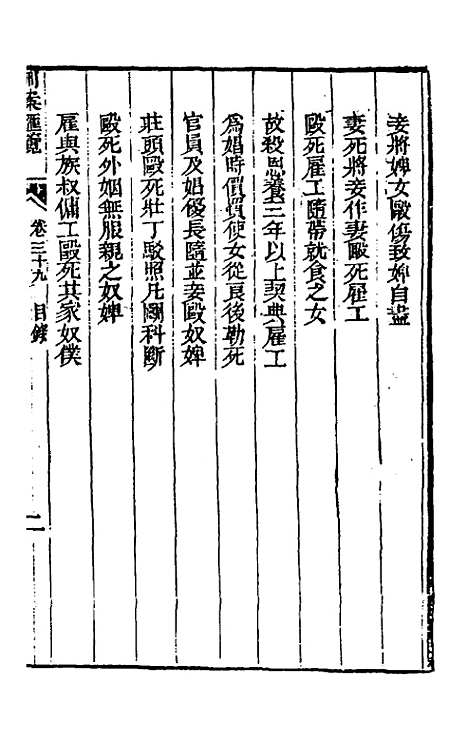 妾將婢女毆傷致婢自盡
妻死將妾作妻毆死雇工
毆死雇工隨帶就食之女
故殺恩養三年以上契典雇工
爲娼時價買使女從良後勒死
官員及娼優長隨並妾毆奴婢
莊頭毆死壯丁駁照凡鬭科斷
毆死外姻無服親之奴婢
雇與族叔傭工毆死其家奴僕
刑案匯覽
卷三十九 目錄
二